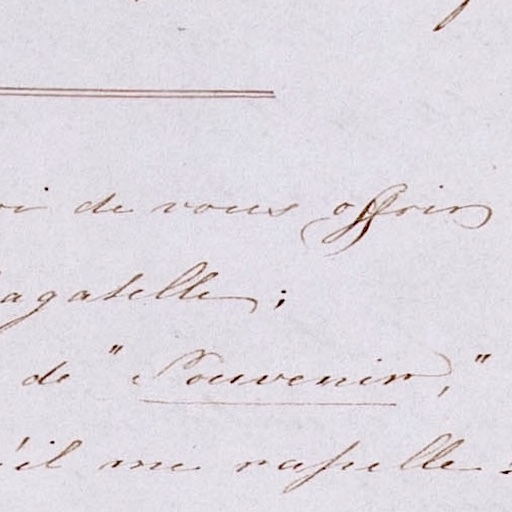 oi de vous offrir
bagatelle;
de "Souvenir,"
qu'il me rapelle